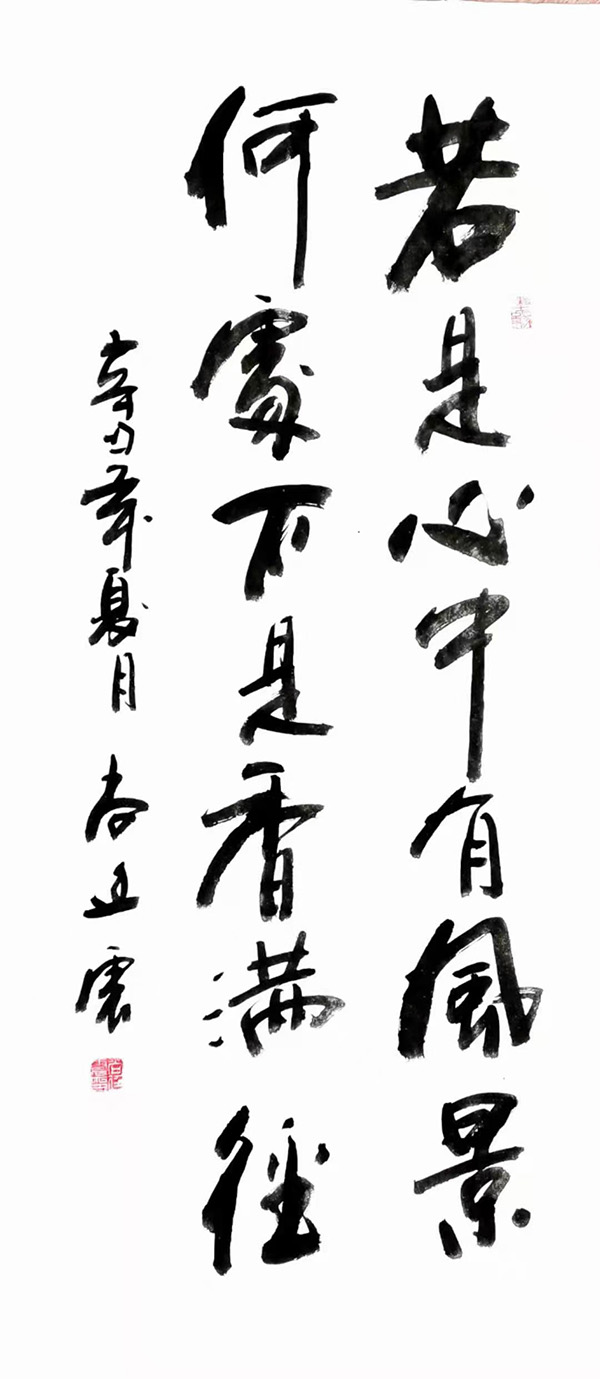 若是心中有風景
何處不是香滿徑
辛丑年夏月 尚正震